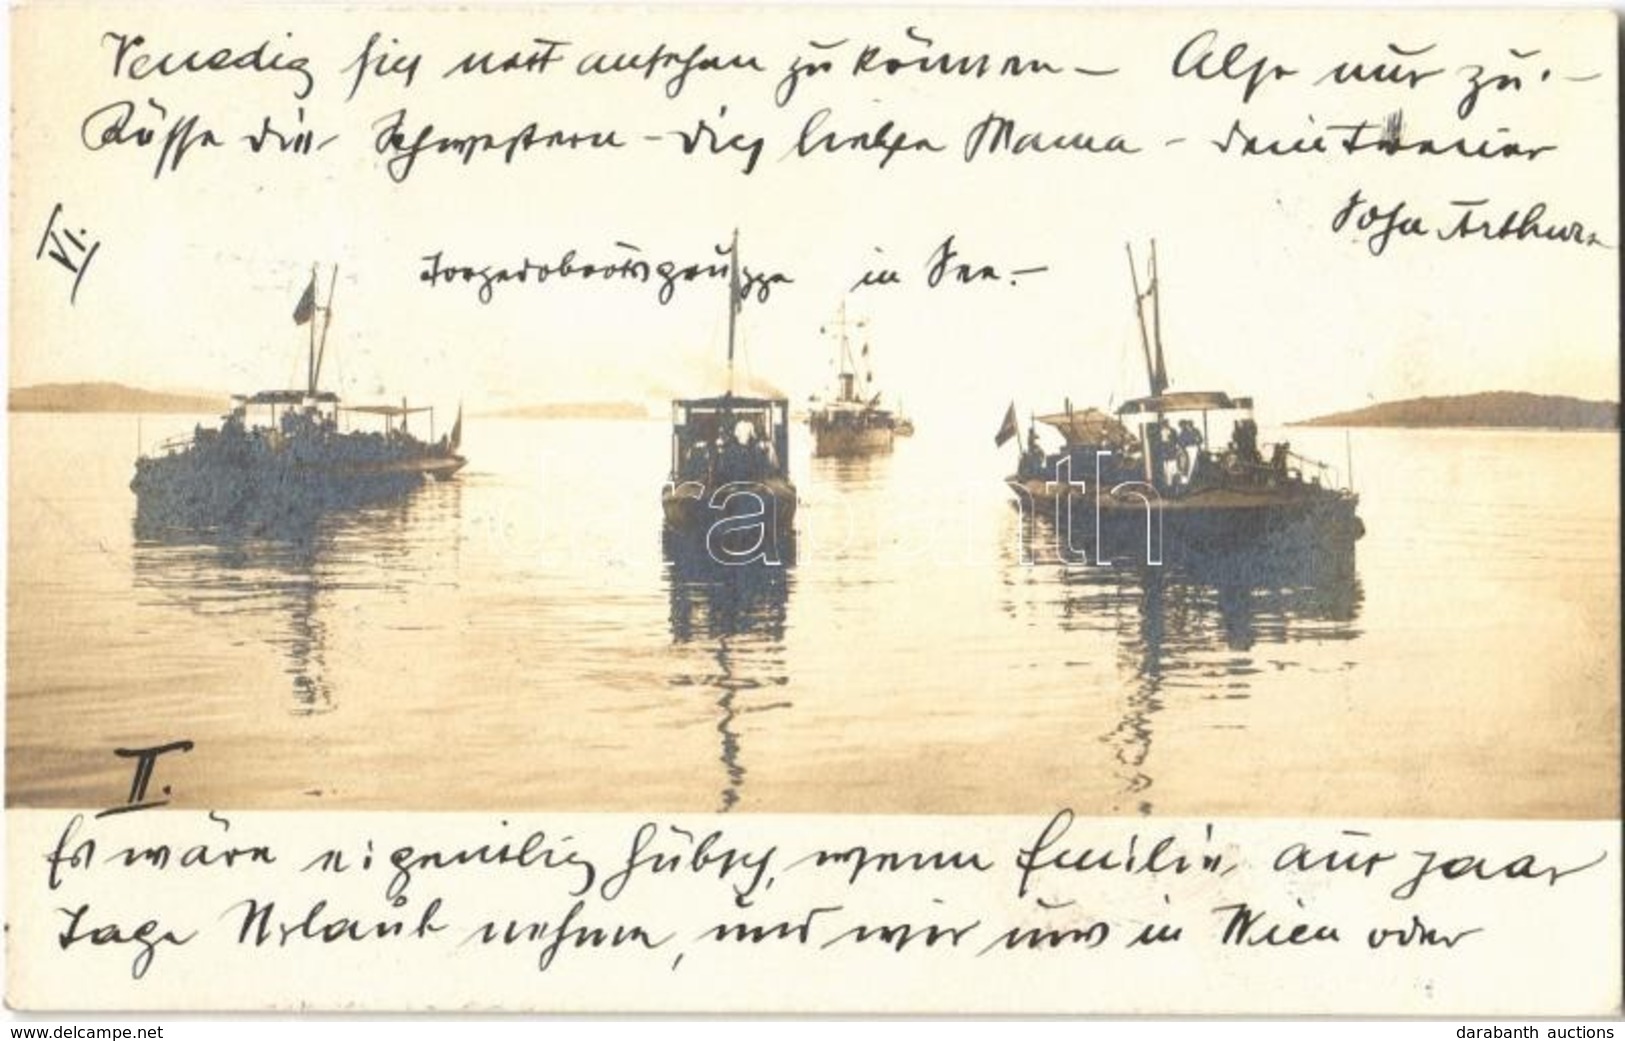 Venedig sich nett ansehen zu können – Also nur zu! –
Küsse die Schwestern – Dich liebe Mama – dein treuer
Sohn Arthur
VI.
Torpedobootsgruppe in See. –
darabanth
II.
Es wäre eigentlich hübsch, wenn Emilie, aur paar
Tage Urlaub nehme, und wir uns in Wien oder
www.delcampe.net
darabanth auctions